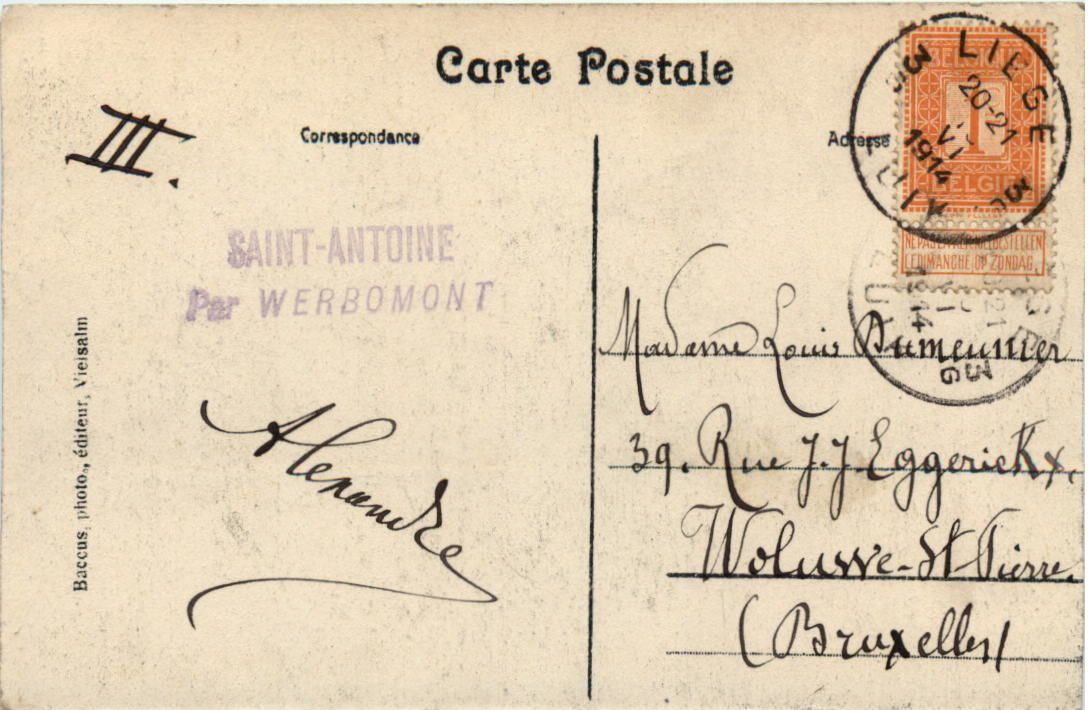 Carte Postale
III.
Correspondance
Adresse
BELGIQUE
1
BELGIË
NE PAS LIVRER
NIET BESTELLEN
LE DIMANCHE OP ZONDAG
3 LIEGE 3
20-21
VI
1914
LUIK
SAINT-ANTOINE
Par WERBOMONT
Alexandre
Baccus, photo., éditeur, Vielsalm
Madame Louis Dumeunier
39. Rue J. J. Eggerickx.
Woluwe-St-Pierre.
(Bruxelles)